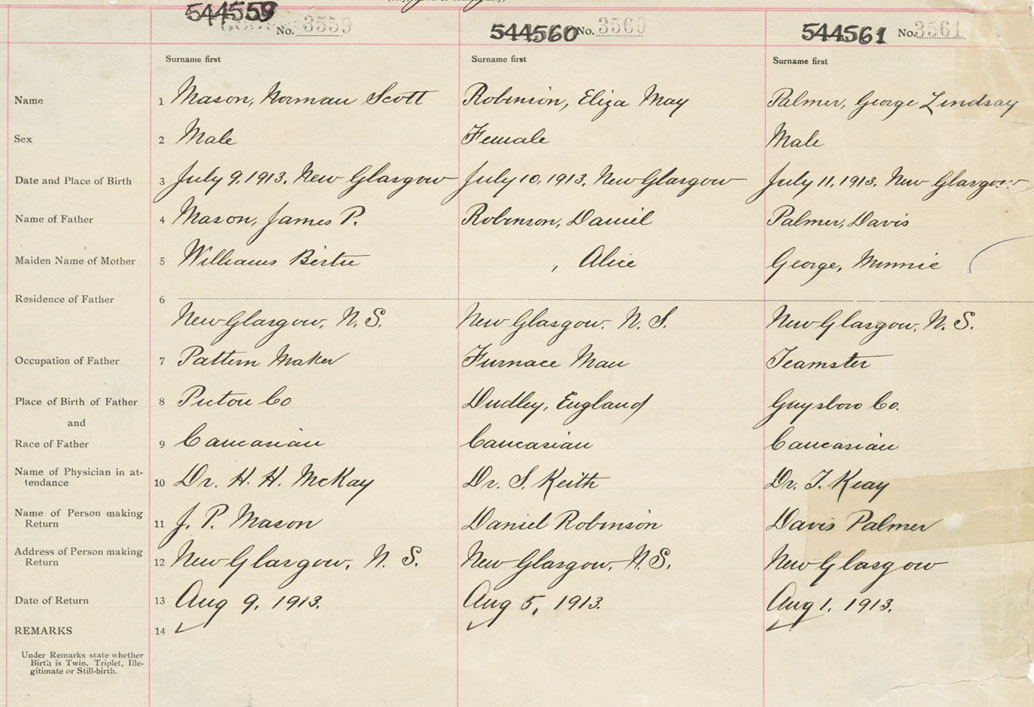 544559 No. 3559 544560 No. 3560 544561 No. 3561
Surname first Surname first Surname first
Name 1 Mason, Norman Scott Robinson, Eliza May Palmer, George Lindsay
Sex 2 Male Female Male
Date and Place of Birth 3 July 9, 1913. New Glasgow July 10, 1913. New Glasgow July 11, 1913. New Glasgow
Name of Father 4 Mason, James P. Robinson, Daniel Palmer, Davis
Maiden Name of Mother 5 Williams , Alice George, Minnie
Residence of Father 6
New Glasgow, N. S. New Glasgow, N. S. New Glasgow, N. S.
Occupation of Father 7 Pattern Maker Furnace Man Teamster
Place of Birth of Father 8 Pictou Co Dudley, England Guysboro Co.
and
Race of Father 9 Caucasian Caucasian Caucasian
Name of Physician in at-
tendance 10 Dr. H. H. McKay Dr. S. Keith Dr. T. Keay
Name of Person making
Return 11 J. P. Mason Daniel Robinson Davis Palmer
Address of Person making
Return 12 New Glasgow, N. S. New Glasgow, N. S. New Glasgow
Date of Return 13 Aug 9, 1913. Aug 5, 1913. Aug 1, 1913.
REMARKS 14
Under Remarks state whether
Birth is Twin, Triplet, Ille-
gitimate or Still-birth.